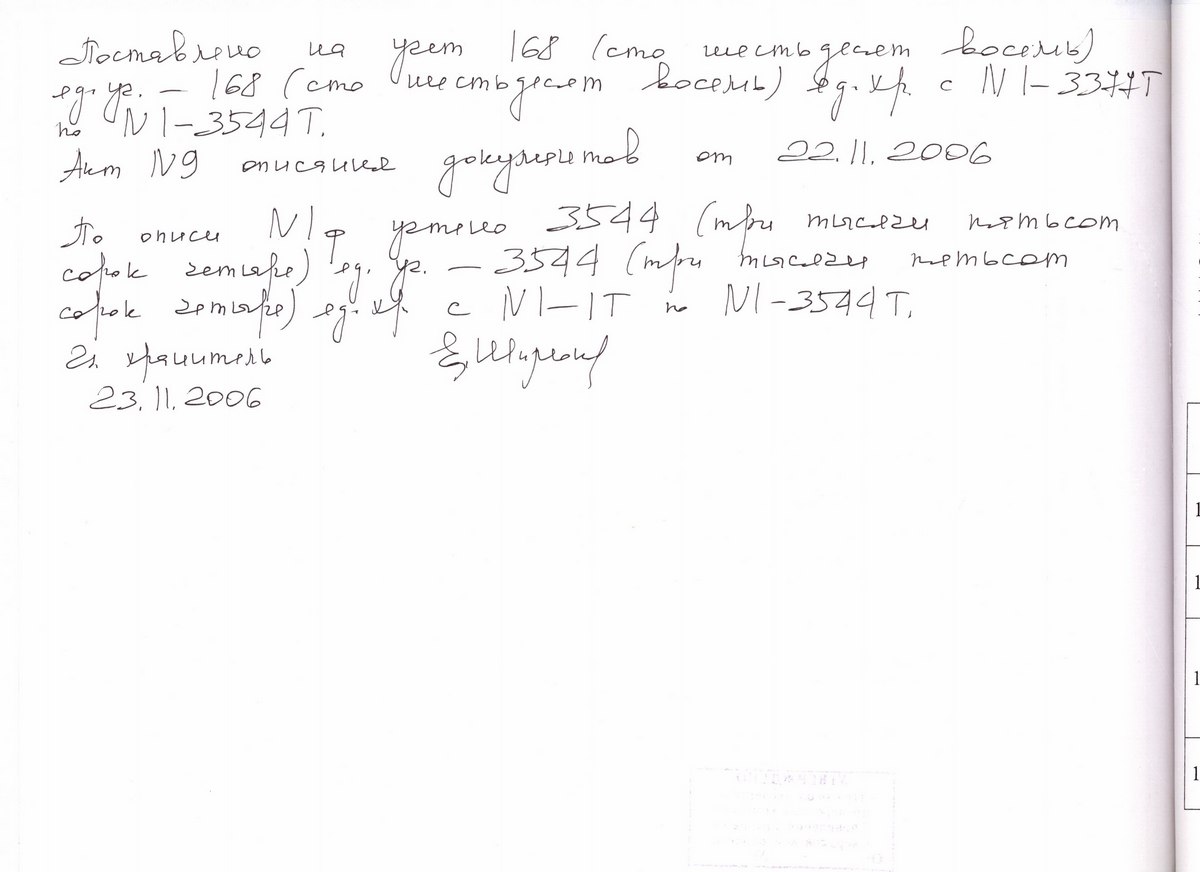 Поставлено на учет 168 (сто шестьдесят восемь)
ед. уч. – 168 (сто шестьдесят восемь) ед. хр. с N 1–3377Т
по N 1–3544Т.
Акт N9 описания документов от 22.11.2006
По описи N1ф учтено 3544 (три тысячи пятьсот
сорок четыре) ед. уч. – 3544 (три тысячи пятьсот
сорок четыре) ед. хр. с N1–1Т по N1–3544Т.
Гл. хранитель
23.11.2006
1
1
1
1